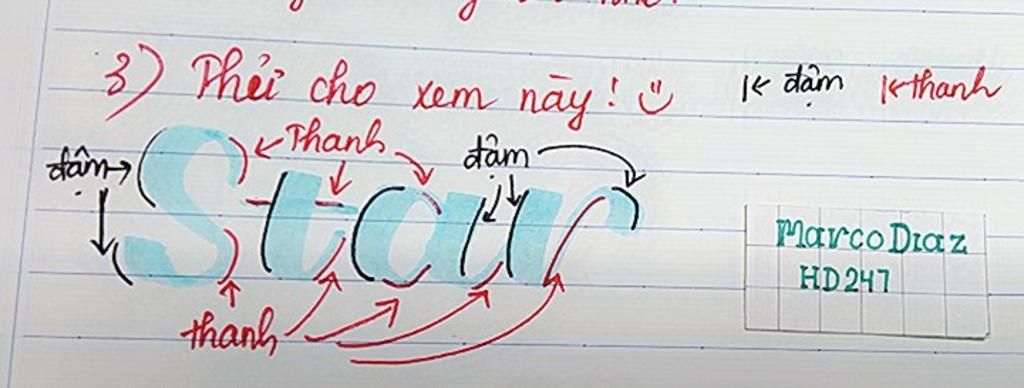 3) Phẻi cho xem này!
đậm thanh
Thanh
đậm
đậm
Star
thanh
Marco Diaz
HD247